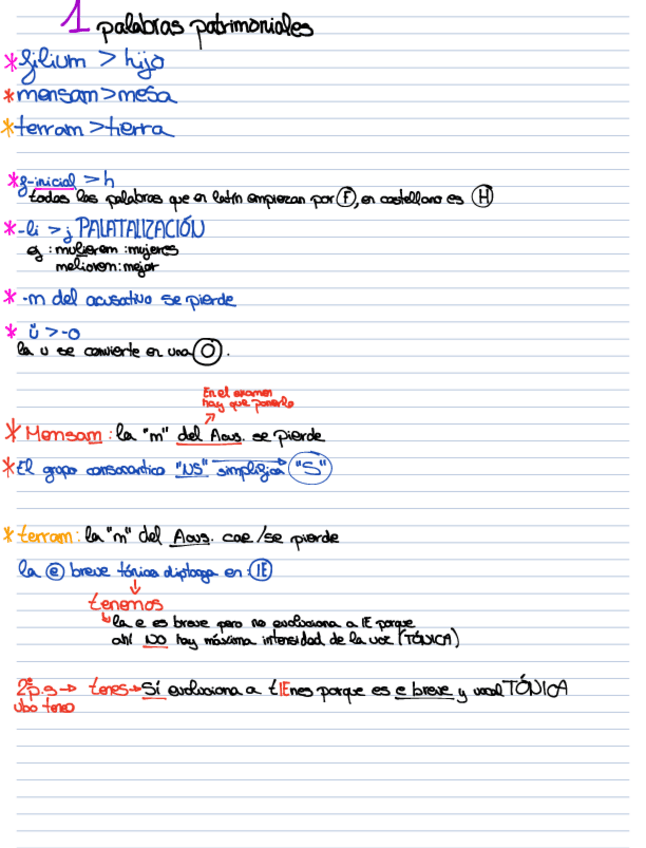 1 palabras patrimoniales
*filium > hijo
*mensam > mesa
*terram > tierra
*f-inicial > h
todas las palabras que en latín empiezan por F, en castellano es H
*-li > j PALATALIZACIÓN
ej: mulierem: mujeres
meliorem: mejor
* -m del acusativo se pierde
* ŭ > -o
la u se convierte en una O.
En el examen
hay que ponerlo
*Mensam: la "m" del Acus. se pierde
*El grupo consonántico "NS" simplifica "S"
*terram: la "m" del Acus. cae/se pierde
la e breve tónica diptonga en IE
tenemos
la e es breve pero no evoluciona a IE porque
ahí NO hay máxima intensidad de la voz (TÓNICA)
2ªp.s → tenes → Sí evoluciona a tIEnes porque es e breve y vocal TÓNICA
vbo teneo